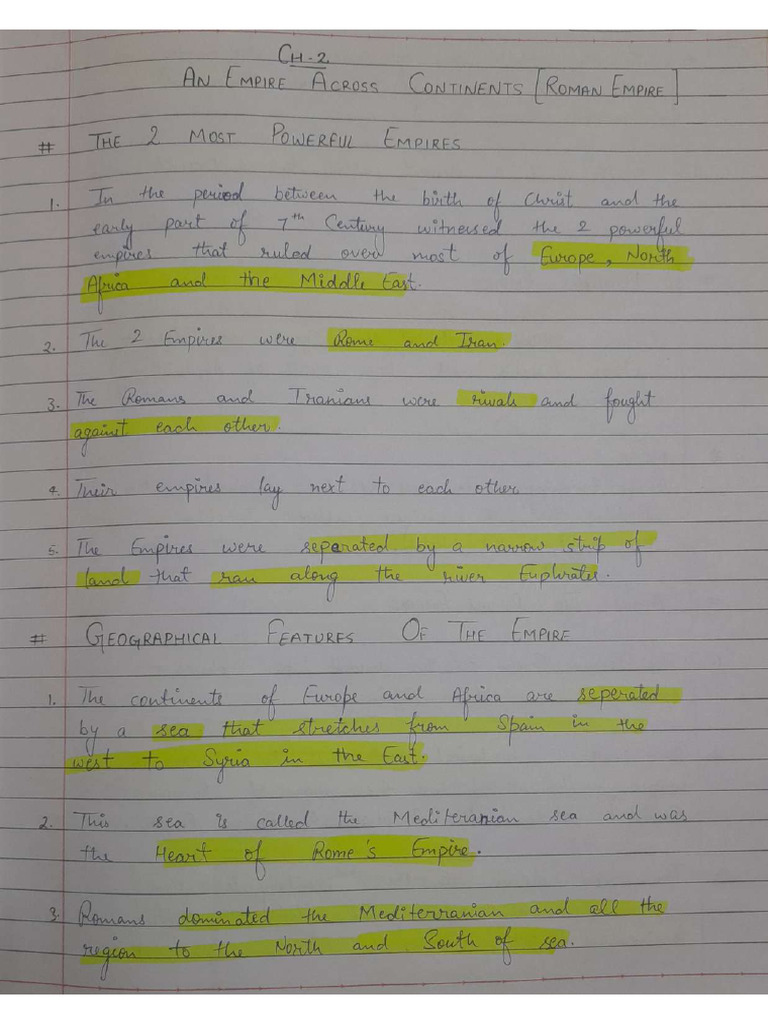 CH-2
AN EMPIRE ACROSS CONTINENTS [ROMAN EMPIRE]
# THE 2 MOST POWERFUL EMPIRES
1. In the period between the birth of Christ and the
early part of 7th Century witnessed the 2 powerful
empires that ruled over most of Europe, North
Africa and the Middle East.
2. The 2 Empires were Rome and Iran.
3. The Romans and Iranians were rivals and fought
against each other.
4. Their empires lay next to each other
5. The Empires were seperated by a narrow strip of
land that ran along the river Euphrates.
# GEOGRAPHICAL FEATURES OF THE EMPIRE
1. The continents of Europe and Africa are seperated
by a sea that stretches from Spain in the
west to Syria in the East.
2. This sea is called the Mediteranian sea and was
the Heart of Rome's Empire.
3. Romans dominated the Mediterranian and all the
region to the North and South of sea.